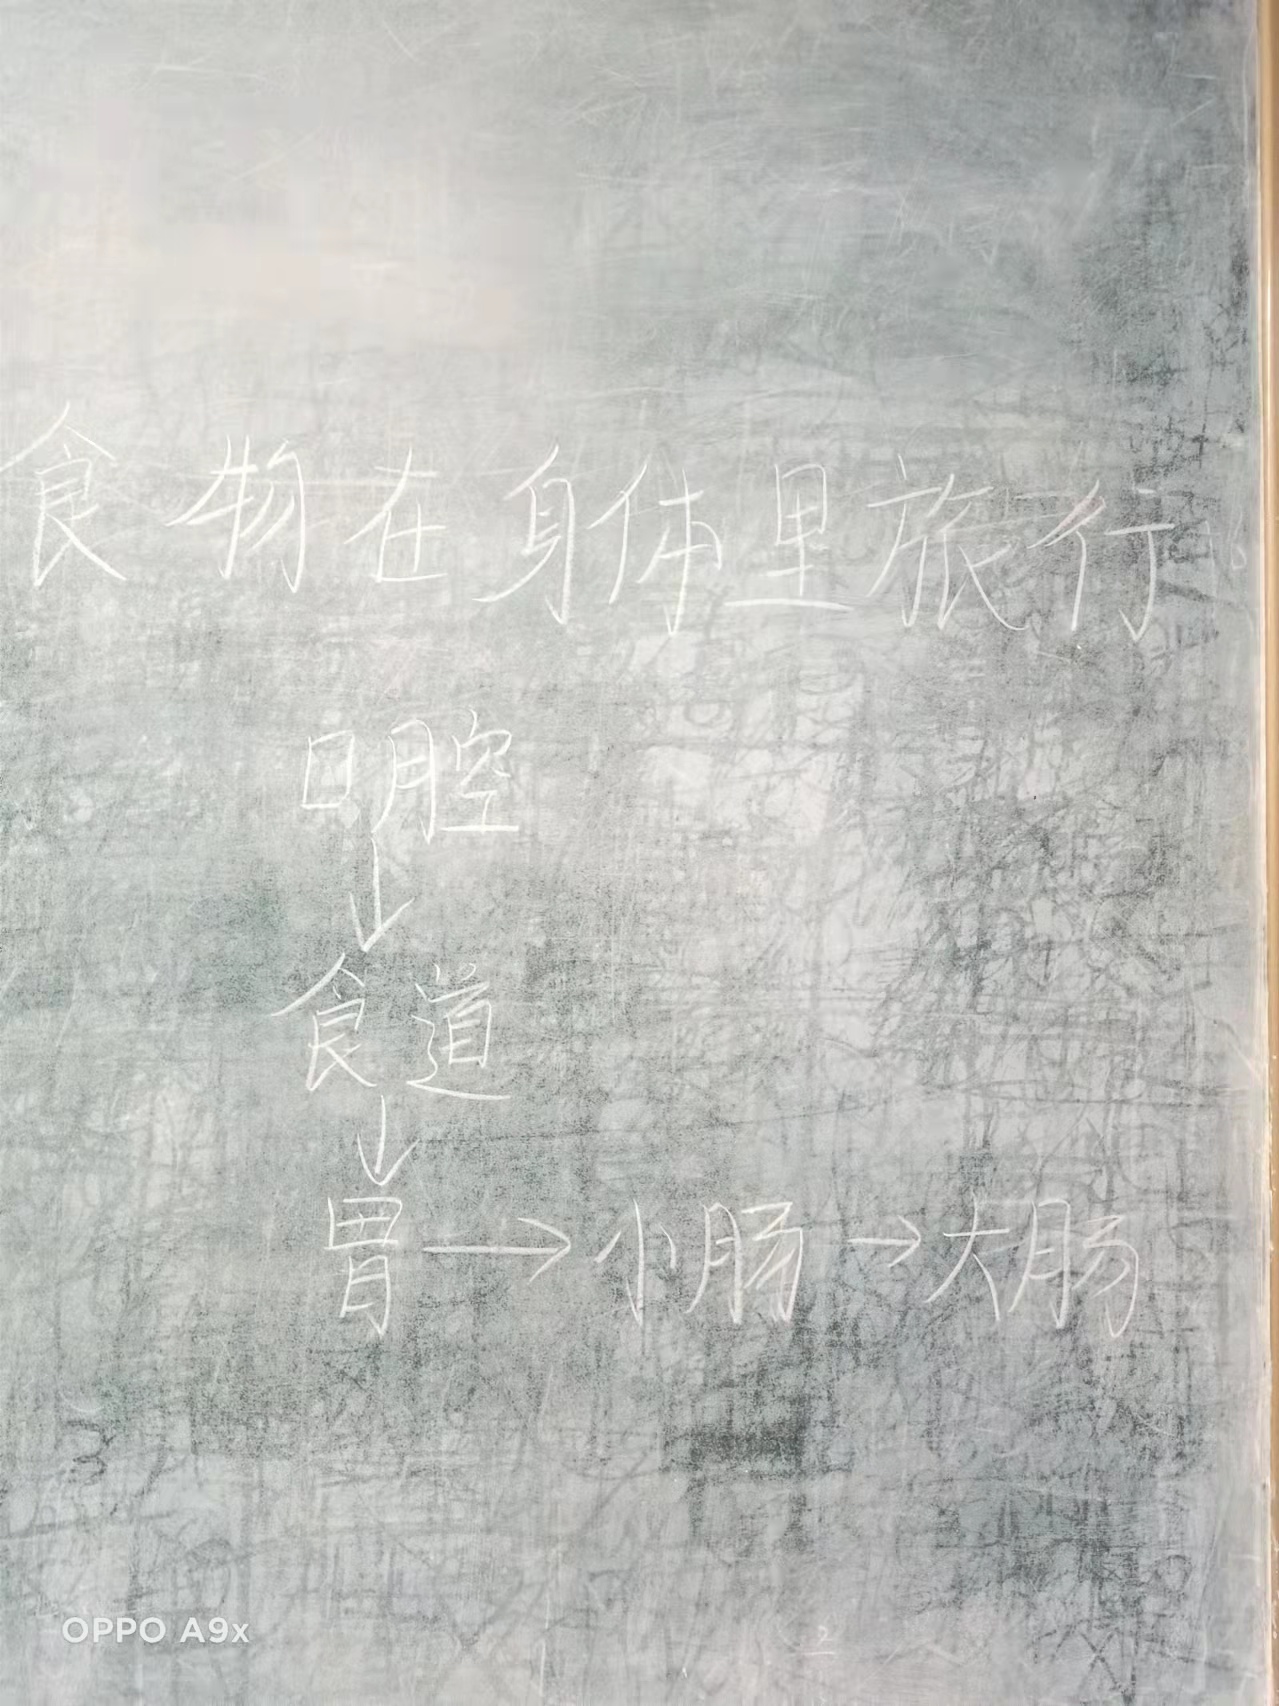 食物在身体里旅行
口腔
↓
食道
↓
胃→小肠→大肠
OPPO A9x